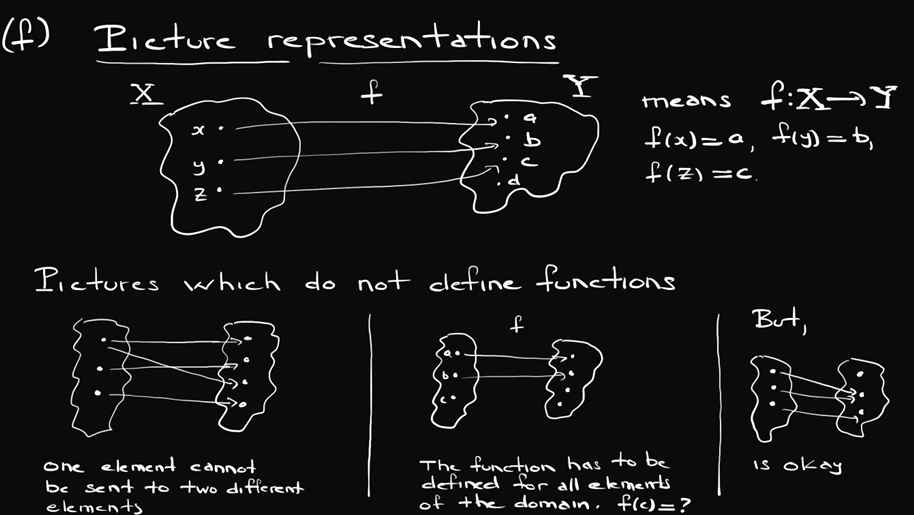 (f) Picture representations
X f Y
x
y
z
a
b
c
d
means f:X→Y
f(x)=a, f(y)=b,
f(z)=c.
Pictures which do not define functions
One element cannot
be sent to two different
elements
f
a
b
c
The function has to be
defined for all elements
of the domain. f(c)=?
But,
is okay